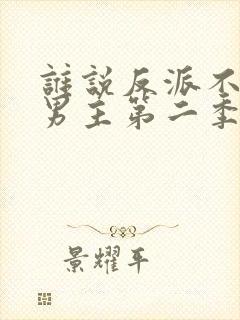 誰說反派不
男主第二季
景耀平